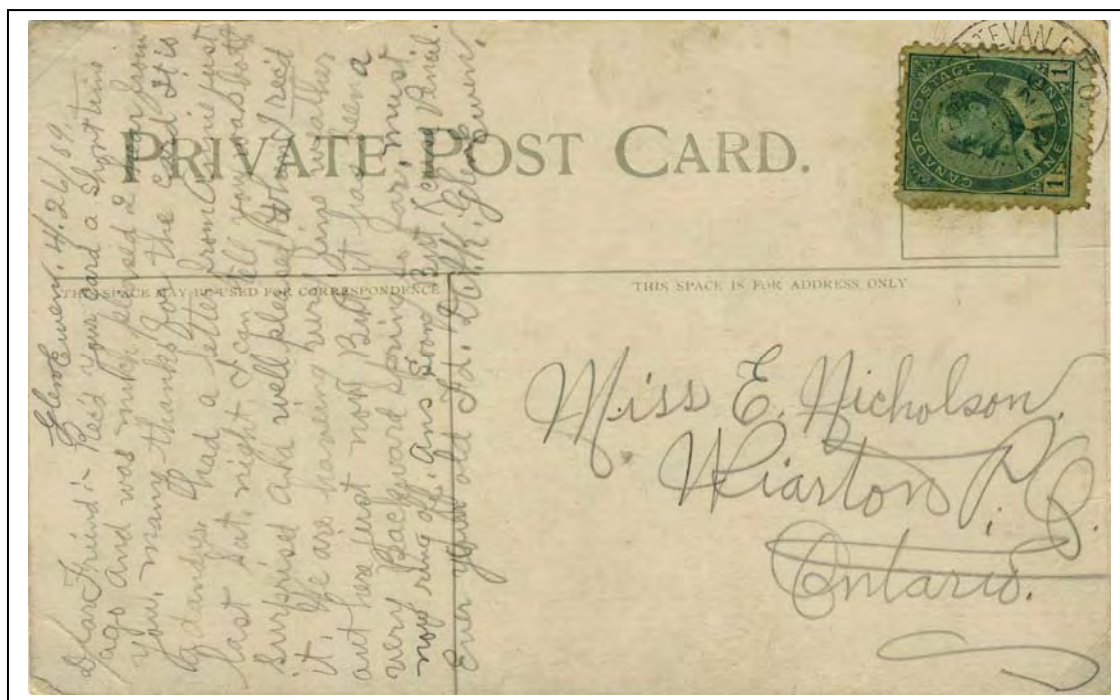 PRIVATE POST CARD.
THIS SPACE MAY BE USED FOR CORRESPONDENCE
THIS SPACE IS FOR ADDRESS ONLY
CANADA POSTAGE
ONE CENT
1 1
Miss E. Nicholson.
Wiarton P.O.
Ontario.
Glen Ewen. 4.26/09.
Dear Friend:- Rec'd your card a short time
ago and was much pleased 2 hear from
you, many thanks for the card it is
had a letter from just
last Sat. night I can tell you was both
Surprised and well pleased when I rec'd
it, We are having fine weather
out here just now But it has been a
very Backward Spring so far; must
now ring off. Ans Soon
Ever your old Glen Ewen.